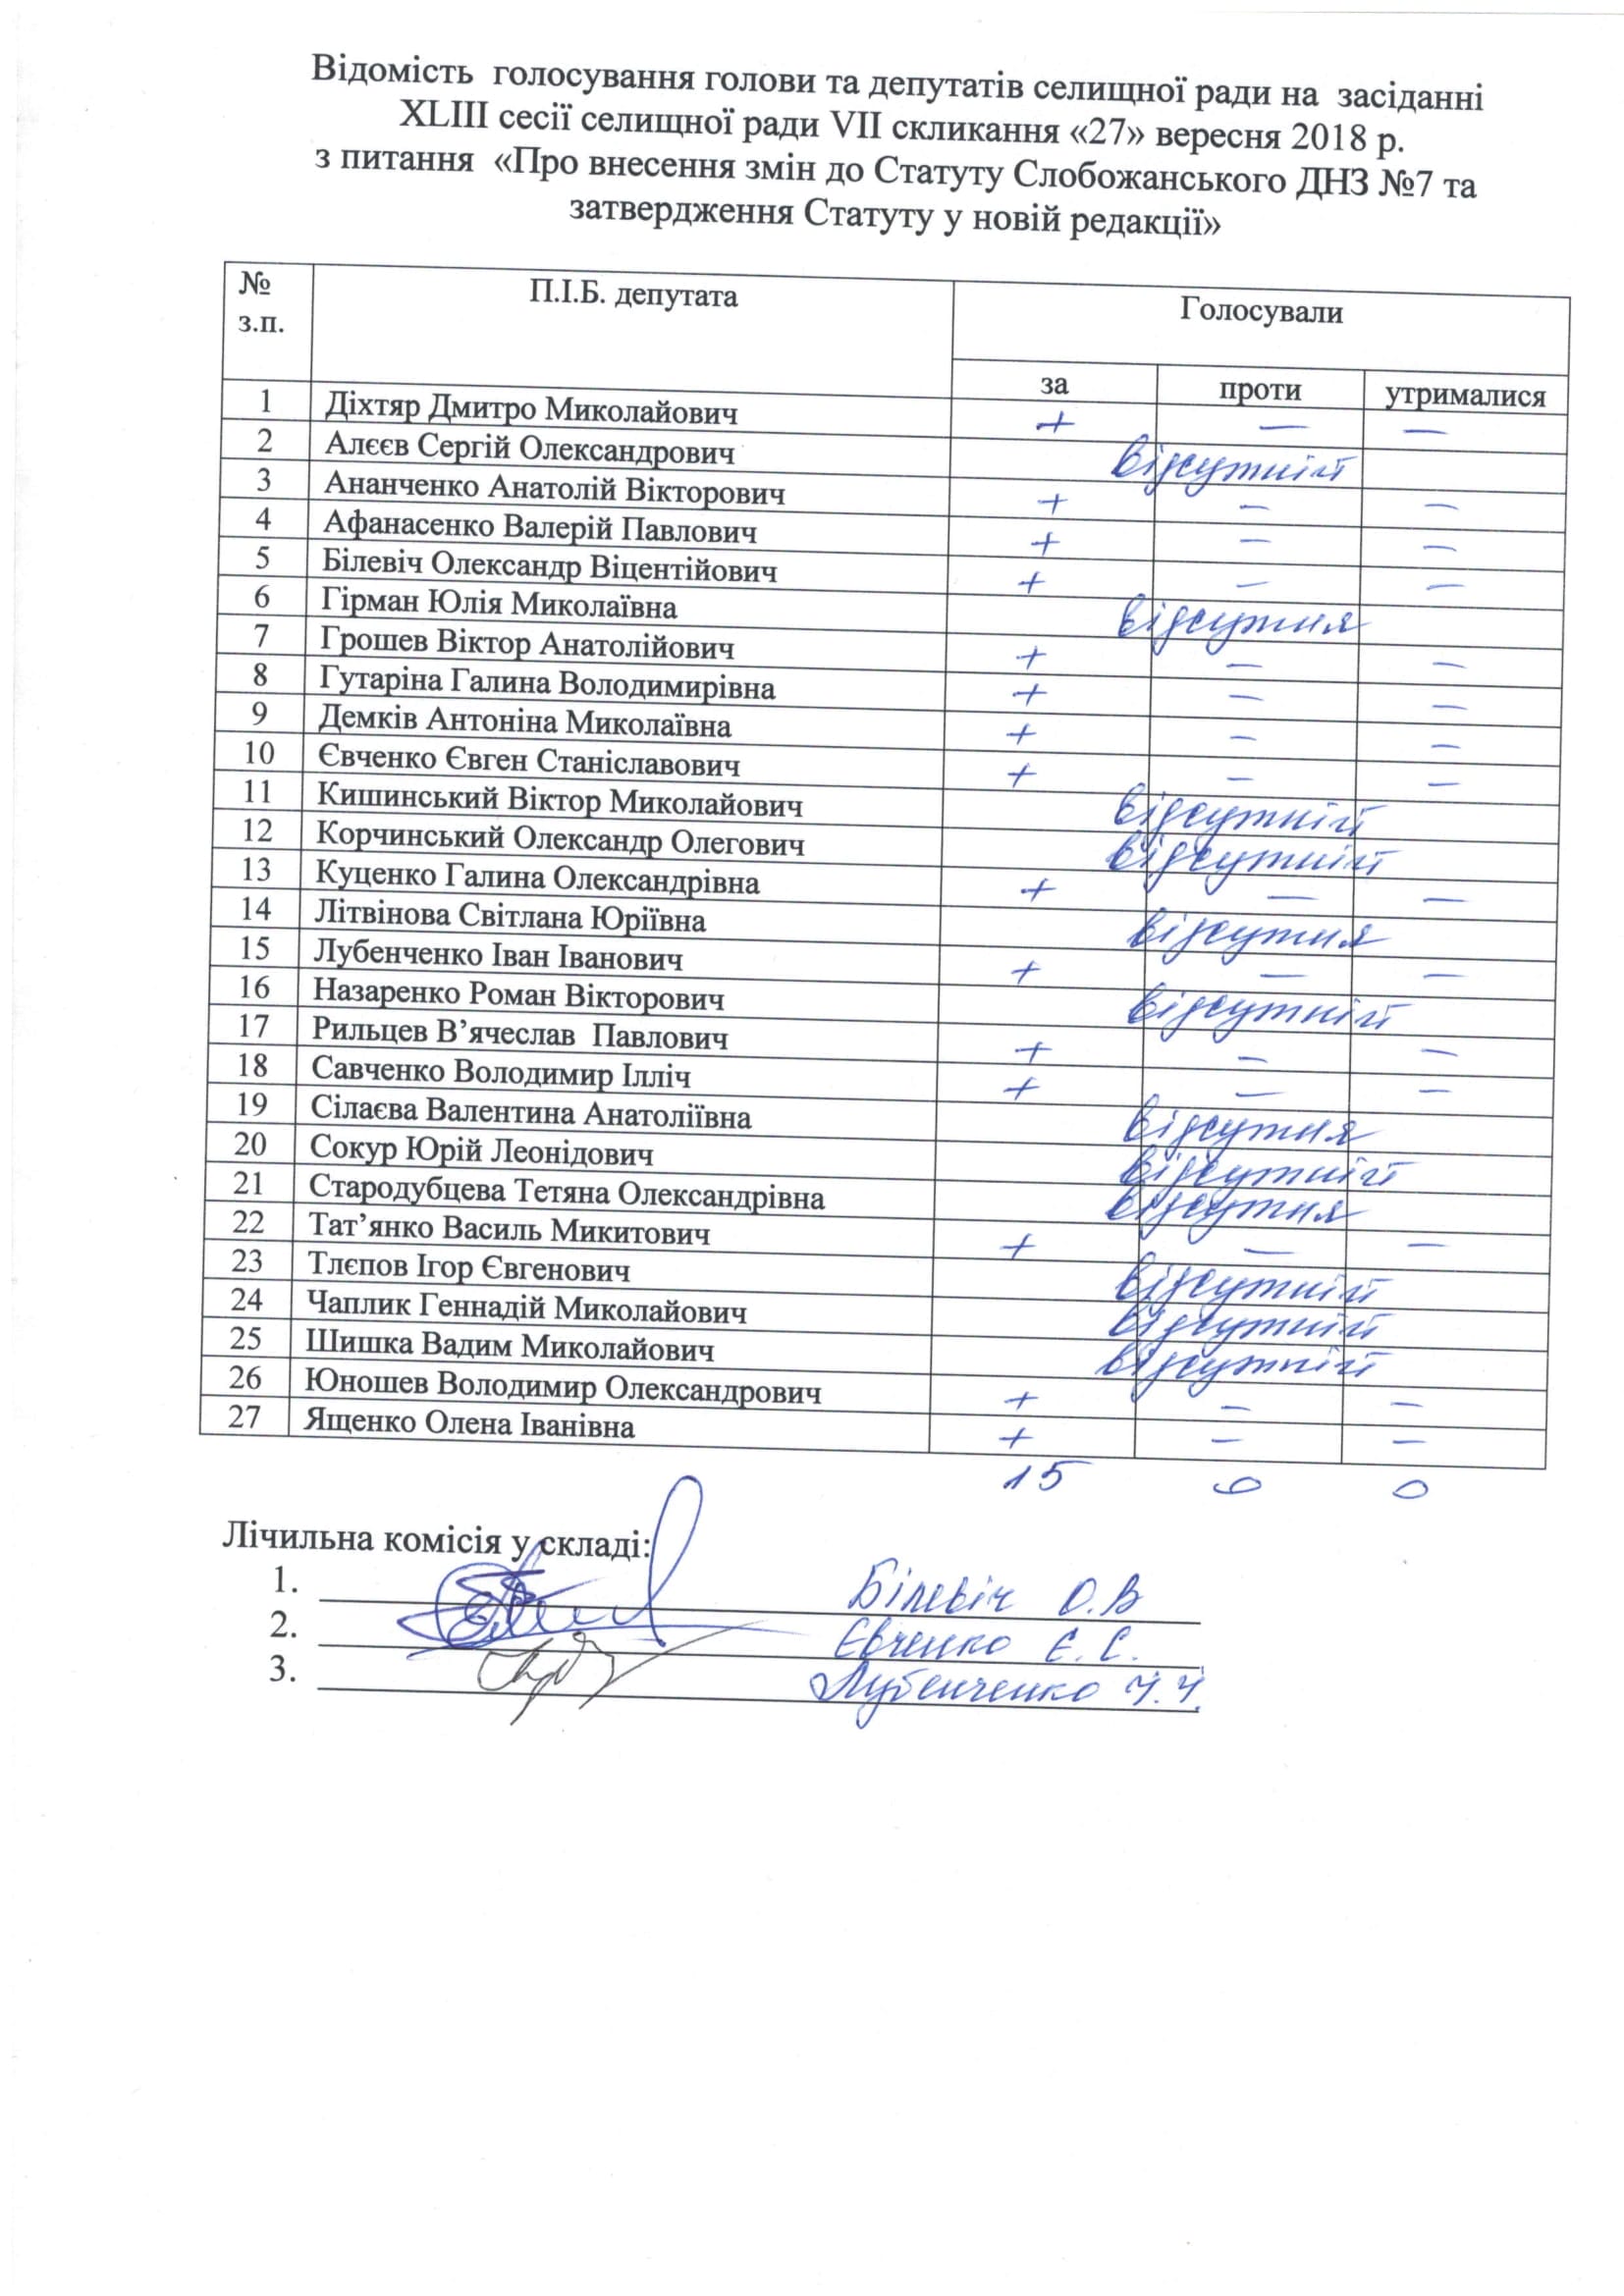 Відомість голосування голови та депутатів селищної ради на засіданні
XLIII сесії селищної ради VII скликання «27» вересня 2018 р.
з питання «Про внесення змін до Статуту Слобожанського ДНЗ №7 та
затвердження Статуту у новій редакції»
№ з.п. П.І.Б. депутата Голосували
за проти утрималися
1 Діхтяр Дмитро Миколайович + — —
2 Алєєв Сергій Олександрович відсутній
3 Ананченко Анатолій Вікторович + — —
4 Афанасенко Валерій Павлович + — —
5 Білевіч Олександр Віцентійович + — —
6 Гірман Юлія Миколаївна відсутня
7 Грошев Віктор Анатолійович + — —
8 Гутаріна Галина Володимирівна + — —
9 Демків Антоніна Миколаївна + — —
10 Євченко Євген Станіславович + — —
11 Кишинський Віктор Миколайович відсутній
12 Корчинський Олександр Олегович відсутній
13 Куценко Галина Олександрівна + — —
14 Літвінова Світлана Юріївна відсутня
15 Лубенченко Іван Іванович + — —
16 Назаренко Роман Вікторович відсутній
17 Рильцев В’ячеслав Павлович + — —
18 Савченко Володимир Ілліч + — —
19 Сілаєва Валентина Анатоліївна відсутня
20 Сокур Юрій Леонідович відсутній
21 Стародубцева Тетяна Олександрівна відсутня
22 Тат’янко Василь Микитович + — —
23 Тлєпов Ігор Євгенович відсутній
24 Чаплик Геннадій Миколайович відсутній
25 Шишка Вадим Миколайович відсутній
26 Юношев Володимир Олександрович + — —
27 Ященко Олена Іванівна + — —
15 0 0
Лічильна комісія у складі:
1. Білевіч О.В
2. Євченко Є.С.
3. Лубенченко І.І.